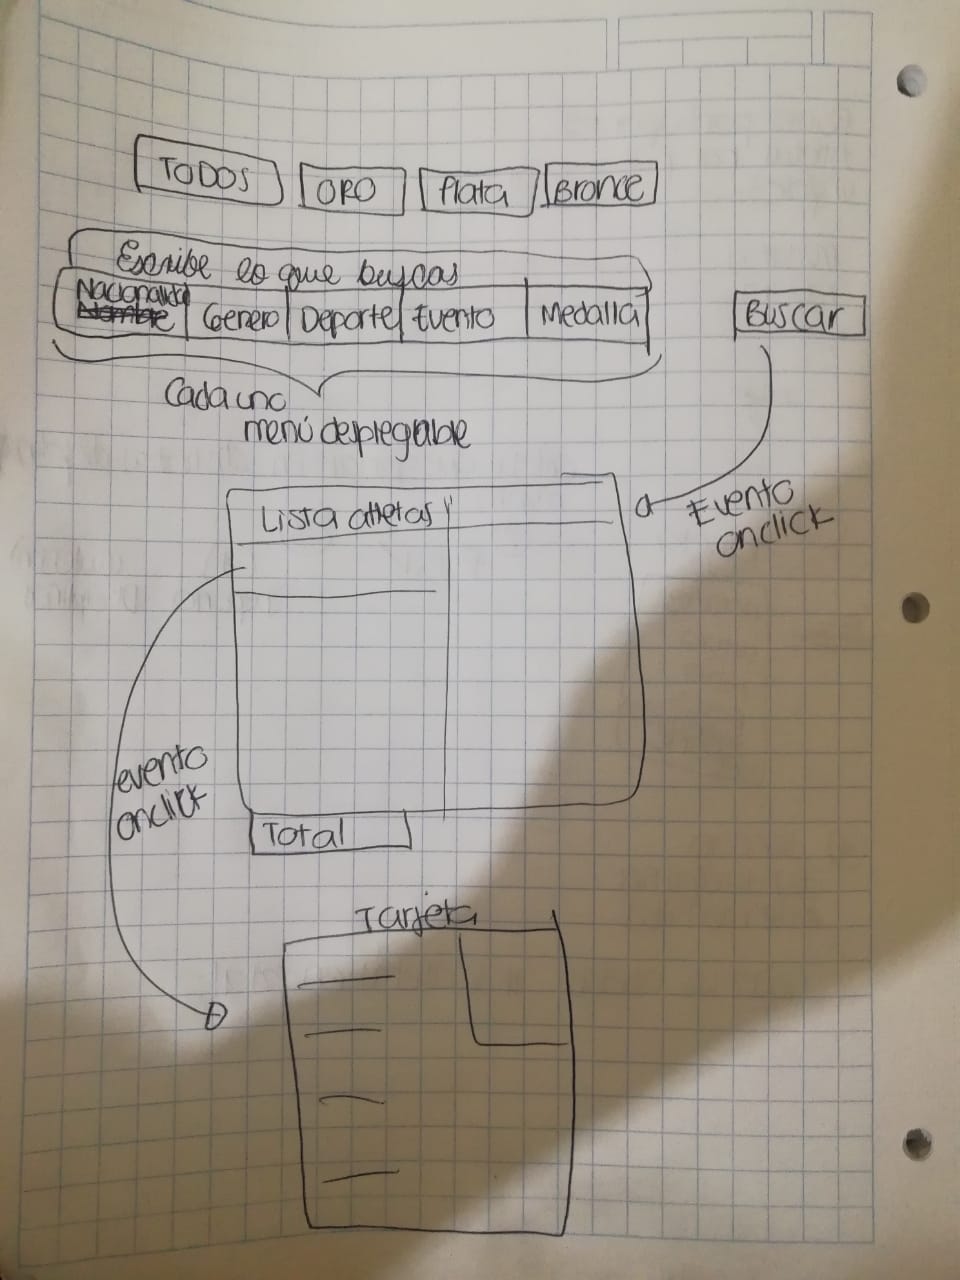 TODOS
ORO
Plata
Bronce
Escribe lo que buscas
Nacionalidad
Nombre
Genero
Deporte
Evento
Medalla
Buscar
Cada uno
menú desplegable
Lista atletas
Evento
onclick
evento
onclick
Total
Tarjeta